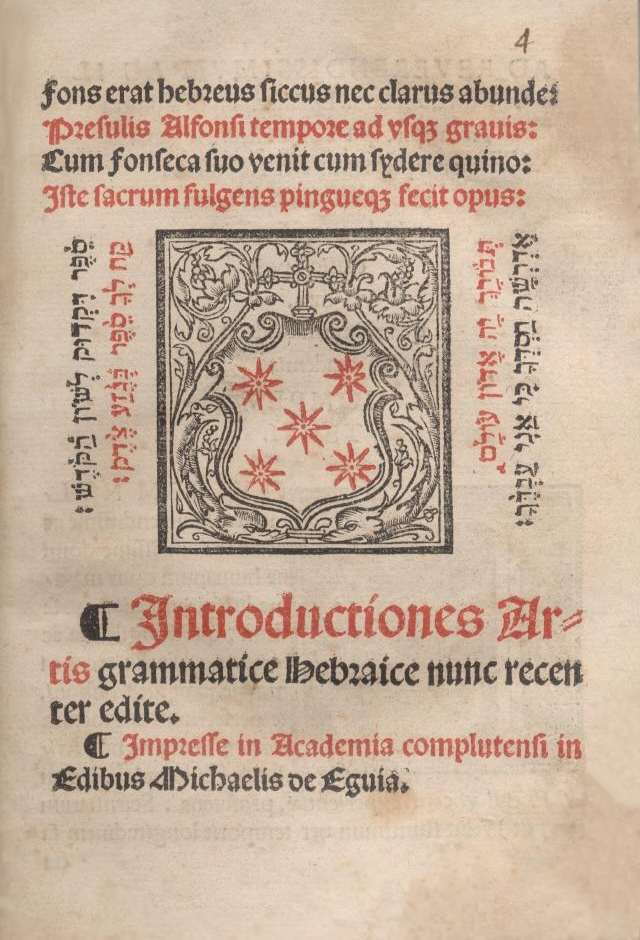 4
fons erat hebreus siccus nec clarus abunde:
Presulis Alfonsi tempore ad vsqꝫ grauis:
Cum fonseca suo venit cum sydere quino:
Iste sacrum fulgens pingueqꝫ fecit opus:
אֶדְרְשָׁה חַסְדְךָ כִּי אֲנִי עַבְדֶּךָ:
תְּבוֹרַךְ יָהּ אֲדוֹן עוֹלָם.
קַח לְךָ סֵפֶר בְּגֶזַע צֶדֶק:
סֵפֶר דִקְדוּק לְשׁוֹן הַקֹדֶשׁ:
¶ Introductiones Ar⸗
tis grammatice Hebraice nunc recen
ter edite.
¶ Impresse in Academia complutensi in
Edibus Michaelis de Eguia.